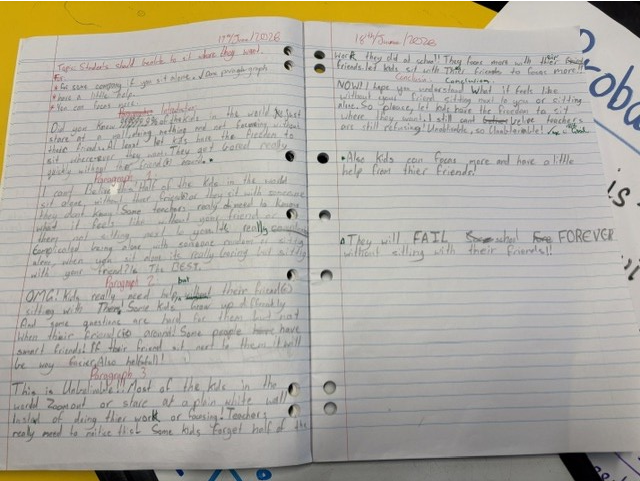 17th/June/2026
Topic: Students should be able to sit where they want.
For:
• For some company if you sit alone. ✓
• have a little help.
• You can focus more
Introduction
Did you know of the kids in the world Just
stare at a wall, doing nothing and not focusing without
their friends. At least let kids have the freedom to
sit wherever they want. They get bored really
quickly without their friend(s) beside.
Paragraph 1
I can't Belive this! Half of the kids in the world
sit alone, without their friends or they sit with someone
they don't know. Some teachers really need to know
what it feels like without your friend or
them not sitting next to you. It's really
complicated being alone with someone random or sitting
alone, when you sit alone its really boring but sitting
with your friend? Is The BEST.
Paragraph 2
OMG! Kids really need help but their friend(s)
sitting with Them. Some kids
And some questions are hard for them but not
When their friend(s) around! Some people have
smart friends! If their friend sit next to them it will
be way Easier, Also helpful!
Paragraph 3
This is Unbelievable!! Most of the kids in the
world Zoom out or stare at a plain white wall
Insted of doing thier work or focusing! Teachers
really need to notice this. Some kids forget half of the
18th/June/2026
Work they did at school! They focus more with thier
friends. let kids sit with Their friends to focus more!!
Conclusion
NOW! I hope you understand What if feels like
without your friend sitting next to you or sitting
alone. So please, let kids have the freedom to sit
where they want. I still can't teachers
are still refusing! Unbelievable, so Unbelievable!
• Also kids can focus more and have a little
help from thier Friends!
• They will FAIL school FOREVER
without sitting with their friends!!
Proba
is